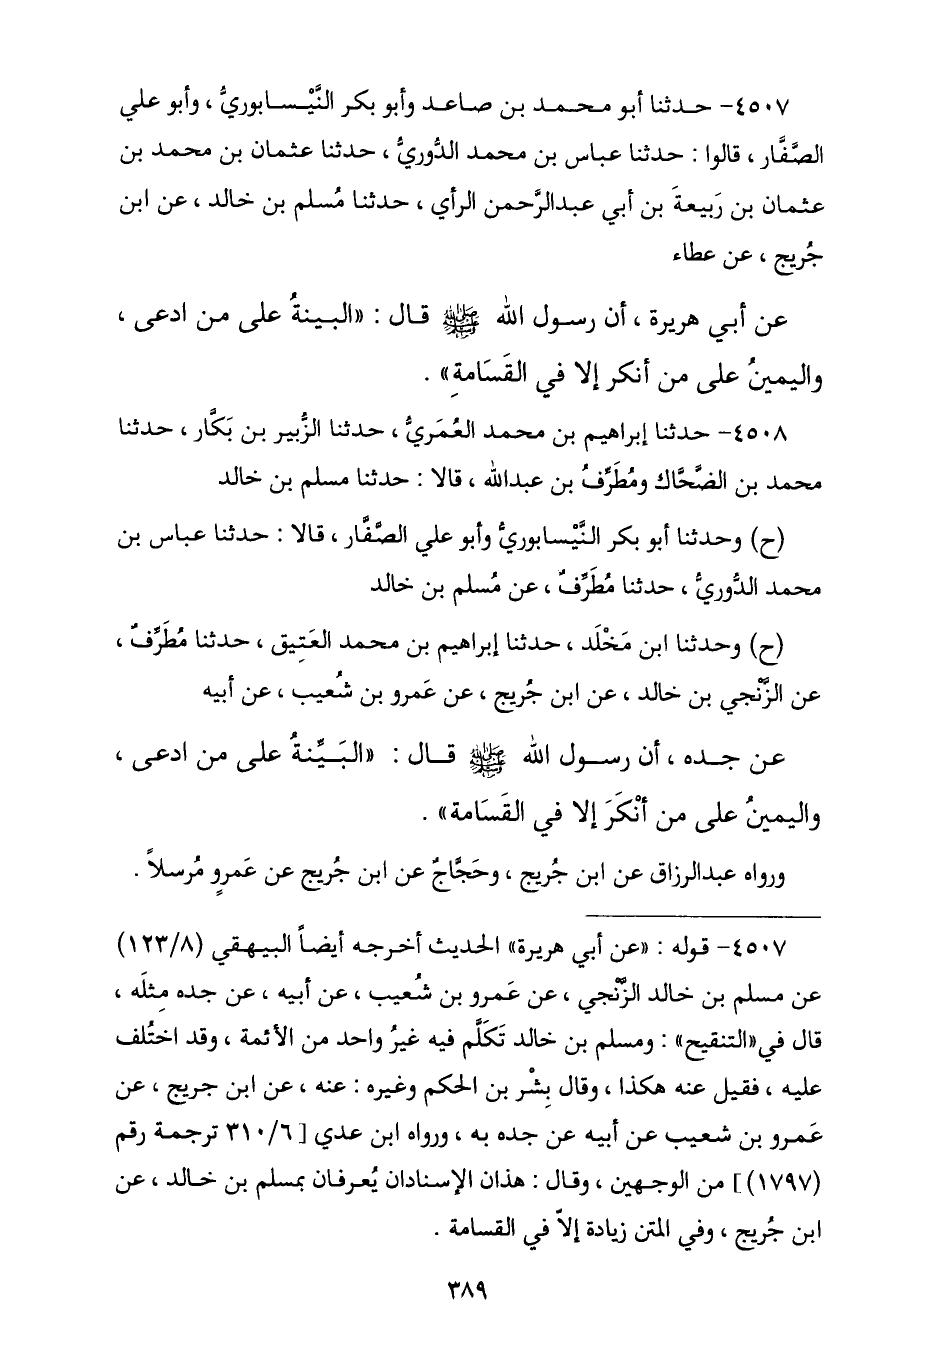 ٤٥٠٧- حـدثنا أبو محـمـد بن صـاعـد وأبو بكر النَّيْـسـابوريُّ ، وأبو علي
الصَّفَّار ، قالوا : حدثنا عباس بن محمد الدُّوريُّ ، حدثنا عثمان بن محمد بن
عثمان بن رَبيعةَ بن أبي عبدالرَّحمن الرأي ، حدثنا مُسلم بن خالد ، عن ابن
جُريج ، عن عطاء
عن أبـي هريرة ، أن رسـول الله ﷺ قـال : «البـينةُ على مـن ادعى ،
واليمينُ على من أنكر إلا في القَسَامةِ» .
٤٥٠٨- حدثنا إبراهيم بن محمد العُمَريُّ ، حدثنا الزُّبير بن بَكَّار ، حدثنا
محمد بن الضَّحَّاك ومُطَرِّفُ بن عبدالله ، قالا : حدثنا مسلم بن خالد
(ح) وحدثنا أبو بكر النَّيْسابوريُّ وأبو علي الصَّفَّار ، قالا : حدثنا عباس بن
محمد الدُّوريُّ ، حدثنا مُطَرِّفٌ ، عن مُسلم بن خالد
(ح) وحدثنا ابن مَخْلَد ، حدثنا إبراهيم بن محمد العَتِيق ، حدثنا مُطَرِّفٌ ،
عن الزَّنْجي بن خالد ، عن ابن جُريج ، عن عَمرو بن شُعيب ، عن أبيه
عـن جـده ، أن رسـول الله ﷺ قـال : «البَـيِّنةُ على من ادعـى ،
واليمينُ على من أنْكَرَ إلا في القَسَامة» .
ورواه عبدالرزاق عن ابن جُريج ، وحَجَّاجٌ عن ابن جُريج عن عَمروٍ مُرسلاً .
٤٥٠٧- قـوله : «عن أبي هريرة» الحديث أخـرجـه أيضـاً البيـهقي (١٢٣/٨)
عن مسلم بن خالد الزَّنْجي ، عن عَمرو بن شُعيب ، عن أبيه ، عن جده مِثلَه ،
قال في«التنقيح» : ومسلم بن خالد تَكَلَّم فيه غيرُ واحد من الأئمة ، وقد اختُلف
عليه ، فقيل عنه هكذا ، وقال بِشْر بن الحكم وغيره : عنه ، عن ابن جريج ، عن
عَمرو بن شعيب عن أبيه عن جده به ، ورواه ابن عدي [٣١٠/٦ ترجمة رقم
(١٧٩٧)] من الوجـهين ، وقال : هذان الإسنادان يُعرفان بمسلم بن خـالد ، عن
ابن جُريج ، وفي المتن زيادة إلاّ في القسامة .
٣٨٩